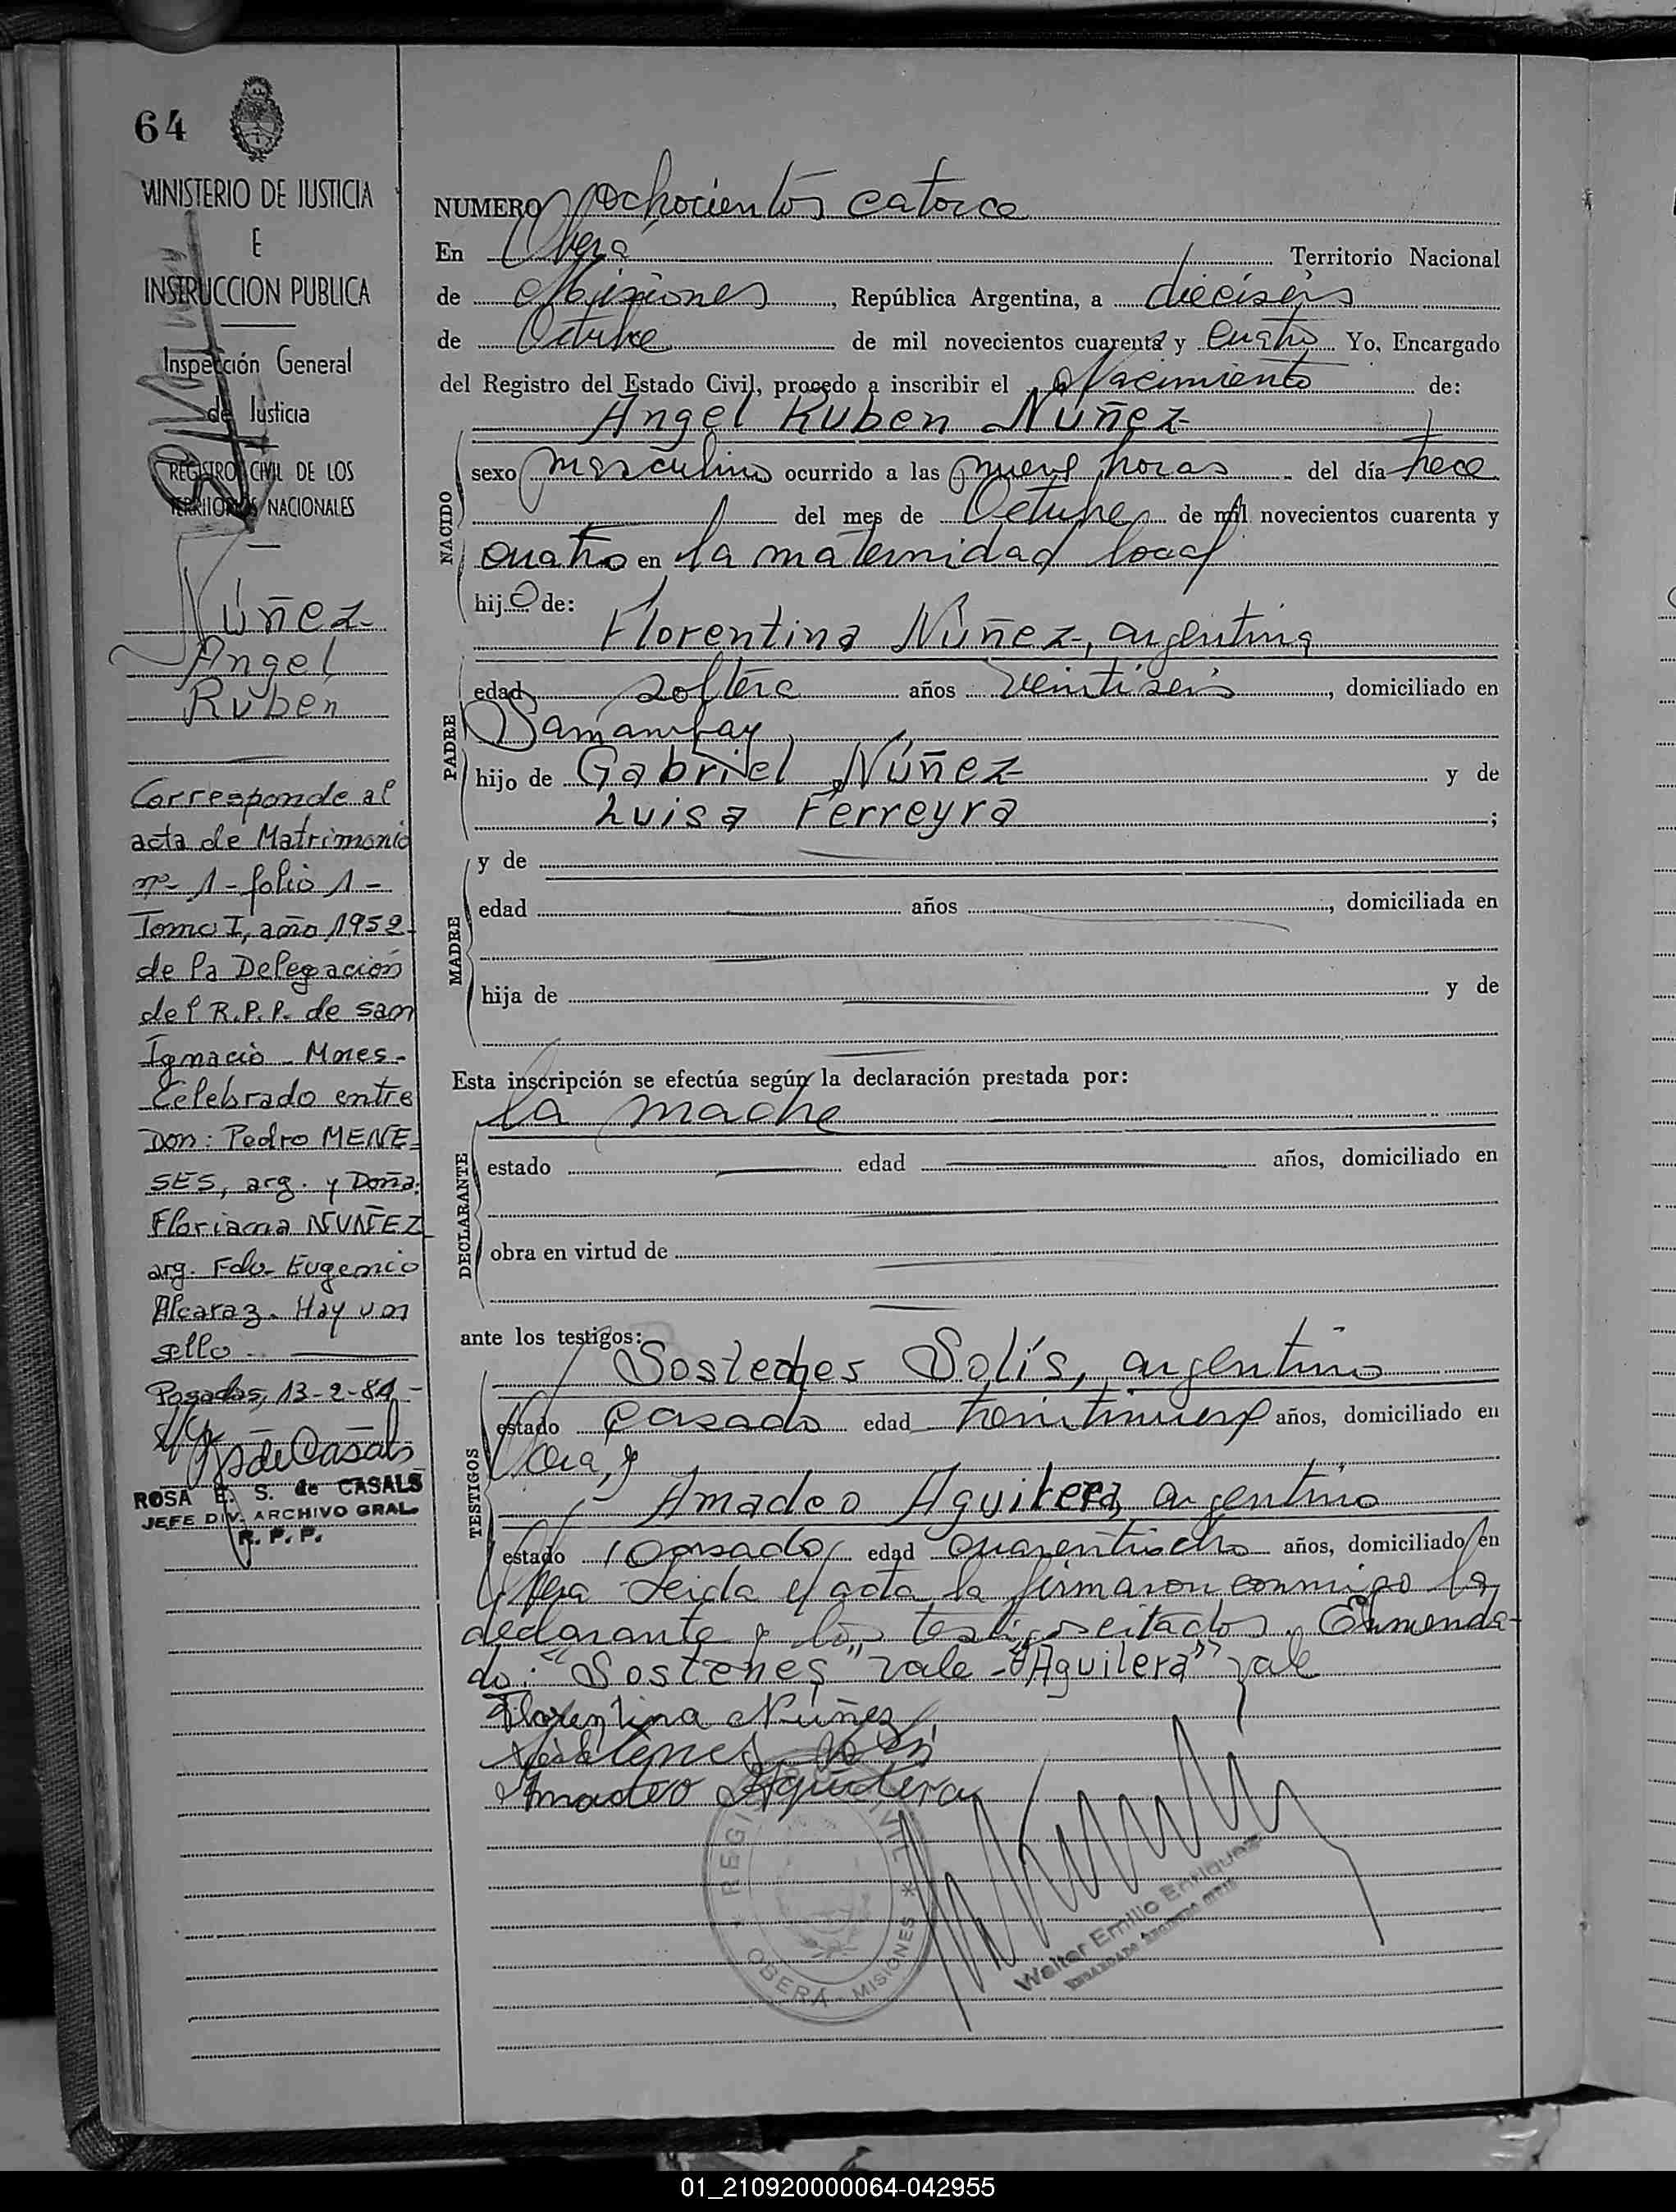 64
MINISTERIO DE JUSTICIA
E
INSTRUCCION PUBLICA
Inspección General
de Justicia
REGISTRO CIVIL DE LOS
TERRITORIOS NACIONALES
Núñez
Angel
Ruben
Corresponde al
acta de Matrimonio
nº 1 - folio 1 -
Tomo I, año 1952
de la Delegación
del R.P.P. de San
Ignacio - Mnes -
Celebrado entre
Don: Pedro MENE-
SES, arg. y Doña:
Floriana NUÑEZ
arg. Fdo. Eugenio
Alcaraz. Hay un
sello
Posadas, 13-2-84 -
RSdeCasals
ROSA E. S. de CASALS
JEFE DIV. ARCHIVO GRAL.
R. P. P.
NUMERO ochocientos catorce
En Oberá Territorio Nacional
de Misiones, República Argentina, a dieciseis
de Octubre de mil novecientos cuarenta y cuatro Yo, Encargado
del Registro del Estado Civil, procedo a inscribir el Nacimiento de:
Angel Ruben Núñez
NACIDO
sexo masculino ocurrido a las nueve horas del día trece
del mes de Octubre de mil novecientos cuarenta y
cuatro en la maternidad local
hijo de:
Florentina Núñez, argentina
PADRE
edad soltera años veintiseis, domiciliado en
Samambay
hijo de Gabriel Núñez y de
Luisa Ferreyra ;
MADRE
y de
edad años , domiciliada en
hija de y de
Esta inscripción se efectúa según la declaración prestada por:
la madre
DECLARANTE
estado edad años, domiciliado en
obra en virtud de
ante los testigos:
Sostenes Solís, argentino
TESTIGOS
estado casado edad treintinueve años, domiciliado en
y
Amadeo Aguilera, argentino
estado casado edad cuarentiocho años, domiciliado en
Oberá Leida el acta, la firmaron conmigo la
declarante y los testigos citados. Enmenda-
do: "Sostenes" vale - "Aguilera" vale
Florentina Núñez
Sostenes Solís
Amadeo Aguilera
REGISTRO CIVIL
OBERÁ - MISIONES
Walter Emilio Enriquez
01_210920000064-042955